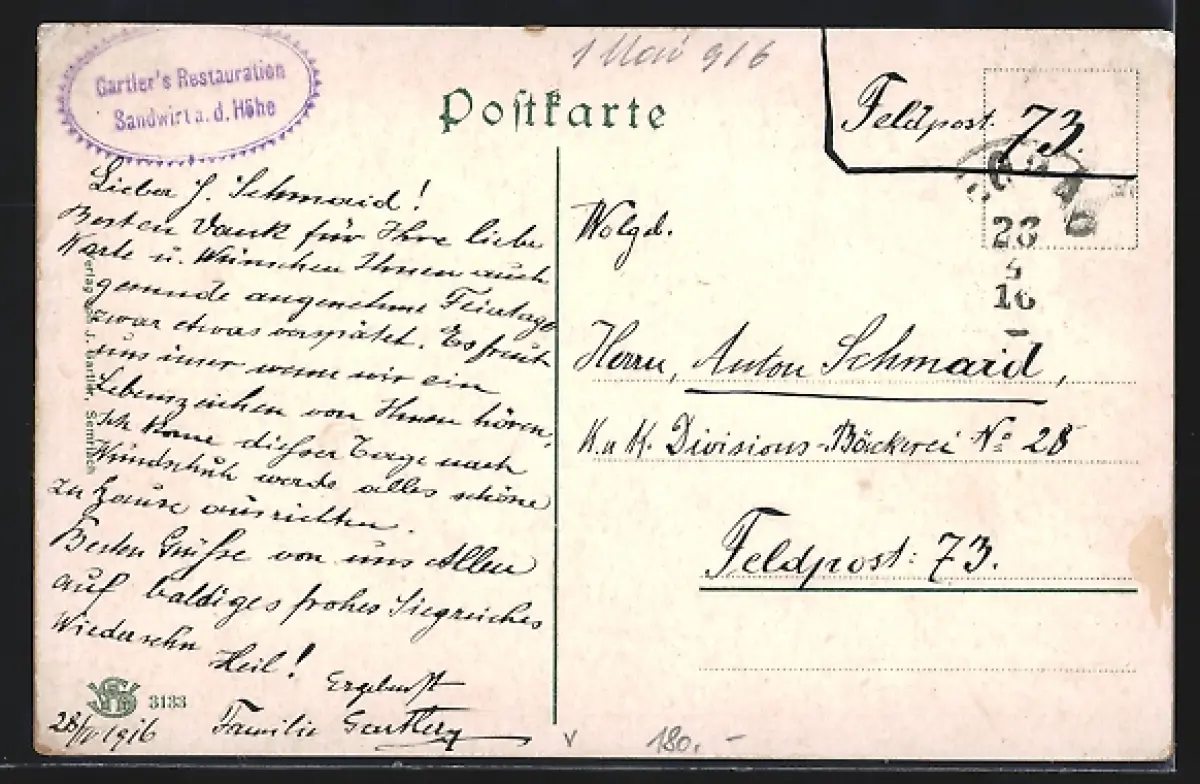 Gartler's Restauration
Sandwirt a. d. Höhe
1 Mai 916
Postkarte
Feldpost 73.
Lieber J. Schmaid!
Besten Dank für Ihre liebe
Karte u. Wünschen Ihnen auch
angenehme Feiertage
zwar etwas verspätet. Es freut
uns imer wenn wir ein
Lebenszeichen von Ihnen hören,
Ich kome dieser Tage nach
Windschuh werde alles schöne
zu Hause ausrichten.
Besten Grüße von uns Allen
auf baldiges frohes Siegreiches
Wiedersehn Heil!
Ergebenst
Familie Gartler
28/IV 1916
3133
Verlag J. Gartler, Semriach
Wolgd.
Herrn, Anton Schmaid,
K. u K. Divisions-Bäckerei No 28
Feldpost: 73.
28
4
16
180.-